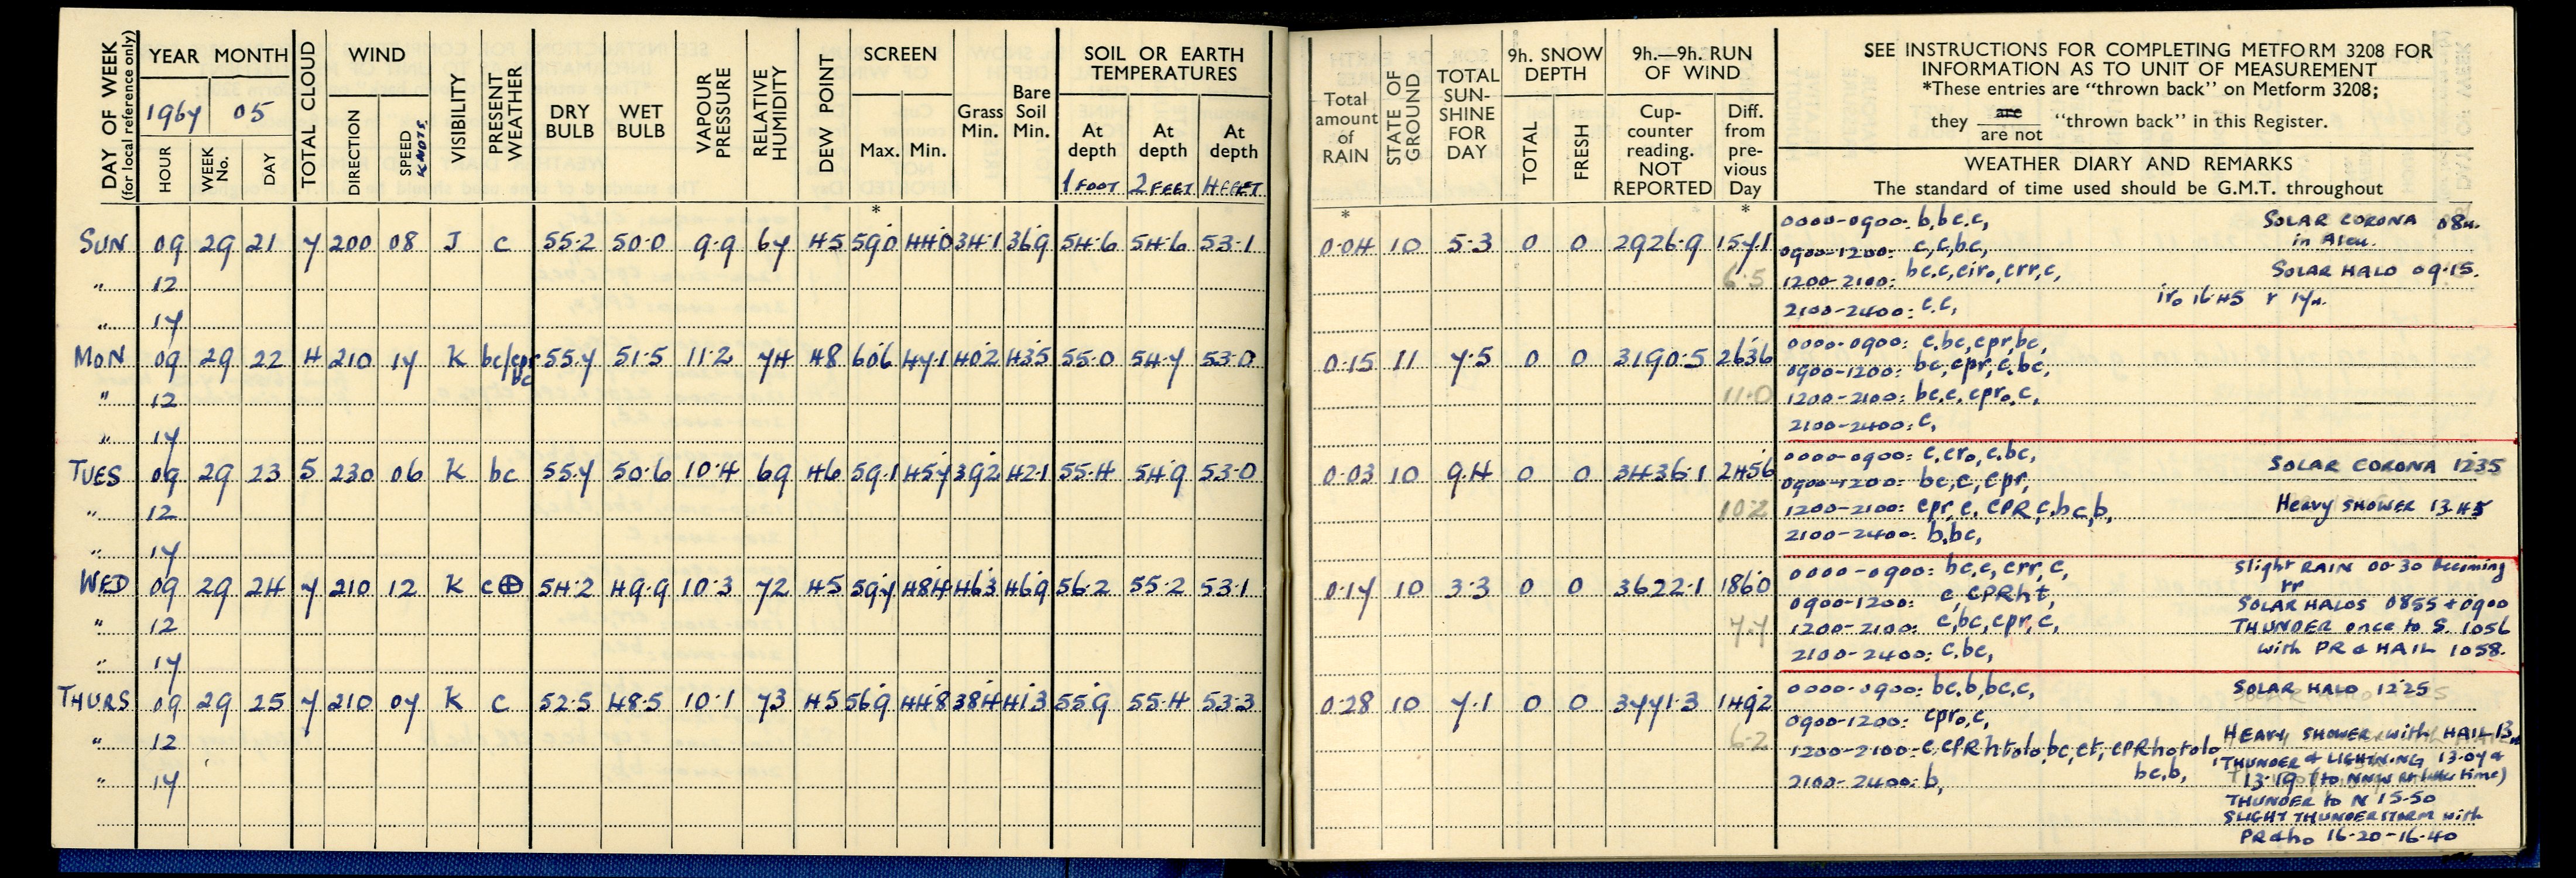 DAY OF WEEK (for local reference only)
YEAR MONTH
1967 05
HOUR WEEK No. DAY
TOTAL CLOUD
WIND
DIRECTION SPEED KNOTS
VISIBILITY
PRESENT WEATHER
DRY BULB
WET BULB
VAPOUR PRESSURE
RELATIVE HUMIDITY
DEW POINT
SCREEN
Max. Min.
Grass Min.
Bare Soil Min.
SOIL OR EARTH TEMPERATURES
At depth 1 FOOT
At depth 2 FEET
At depth 4 FEET
Total amount of RAIN
STATE OF GROUND
TOTAL SUN-SHINE FOR DAY
9h. SNOW DEPTH
TOTAL FRESH
9h.—9h. RUN OF WIND
Cup-counter reading. NOT REPORTED
Diff. from pre-vious Day
SEE INSTRUCTIONS FOR COMPLETING METFORM 3208 FOR
INFORMATION AS TO UNIT OF MEASUREMENT
*These entries are "thrown back" on Metform 3208;
they are / are not "thrown back" in this Register.
WEATHER DIARY AND REMARKS
The standard of time used should be G.M.T. throughout
* * *
SUN 09 29 21 7 200 08 J c 55.2 50.0 9.9 67 45 59.0 44.0 34.1 36.9 54.6 54.6 53.1 0.04 10 5.3 0 0 2926.9 157.1
" 12 6.5
" 17
0000-0900: b,bc,c, SOLAR CORONA
0900-1200: c,c,bc,
1200-2100: bc,c,ciro,crr,c, SOLAR HALO 09.15.
iro 16.45
2100-2400: c.c,
MON 09 29 22 4 210 17 K bc/cpr bc 55.7 51.5 11.2 74 48 60.6 47.1 40.2 43.5 55.0 54.7 53.0 0.15 11 7.5 0 0 3190.5 263.6
" 12 11.0
" 17
0000-0900: c,bc,cpr,bc,
0900-1200: bc,cpr,c,bc,
1200-2100: bc,c,cpro,c,
2100-2400: c,
TUES 09 29 23 5 230 06 K bc 55.7 50.6 10.4 69 46 59.1 45.7 39.2 42.1 55.4 54.9 53.0 0.03 10 9.4 0 0 3436.1 245.6
" 12 10.2
" 17
0000-0900: c,cro,c,bc, SOLAR CORONA 1235
0900-1200: bc,c,cpr,
1200-2100: cpr,c,cPR,c,bc,b, Heavy SHOWER 13.45
2100-2400: b,bc,
WED 09 29 24 7 210 12 K c⊕ 54.2 49.9 10.3 72 45 59.7 48.4 46.3 46.9 56.2 55.2 53.1 0.17 10 3.3 0 0 3622.1 186.0
" 12 7.7
" 17
0000-0900: bc,c,crr,c, Slight RAIN 00.30 becoming rr
0900-1200: c,cPRht, SOLAR HALOS 0855 + 0900
1200-2100: c,bc,cpr,c, THUNDER once to S. 1056
2100-2400: c,bc, with PR & HAIL 1058.
THURS 09 29 25 7 210 07 K c 52.5 48.5 10.1 73 45 56.9 44.8 38.4 41.3 55.9 55.4 53.3 0.28 10 7.1 0 0 3771.3 149.2
" 12 6.2
" 17
0000-0900: bc,b,bc,c, SOLAR HALO 1225
0900-1200: cpro,c,
1200-2100: c,cPRhtolo,bc,ct,cPRhotolo, bc,b, HEAVY SHOWER with HAIL
2100-2400: b, THUNDER & LIGHTNING 13.07 &
13.19 (to NNW at latter time)
THUNDER to N 15.50
SLIGHT THUNDERSTORM with
PR&ho 16.20-16.40